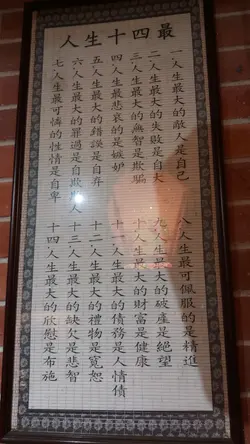 人生十四最
一人生最大的敵人是自己
二人生最大的失敗是自大
三人生最大的無智是欺騙
四人生最悲哀的是嫉妒
五人生最大的錯誤是自棄
六人生最大的罪過是自欺欺人
七人生最可憐的性情是自卑
八人生最可佩服的是精進
九人生最大的破產是絕望
十人生最大的財富是健康
十一人生最大的債務是人情債
十二人生最大的禮物是寬恕
十三人生最大的缺欠是悲智
十四人生最大的欣慰是布施